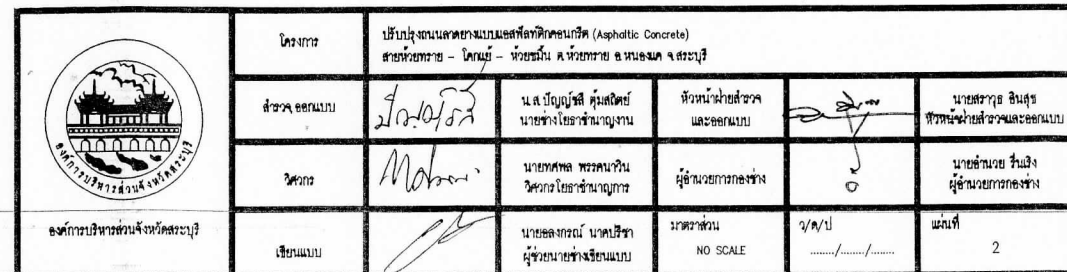 องค์การบริหารส่วนจังหวัดสระบุรี
องค์การบริหารส่วนจังหวัดสระบุรี
โครงการ
ปรับปรุงถนนลาดยางแบบแอสฟัลท์ติกคอนกรีต (Asphaltic Concrete)
สายห้วยทราย - โคกแย้ - ห้วยขมิ้น ต.ห้วยทราย อ.หนองแค จ.สระบุรี
สำรวจ ออกแบบ
น.ส.ปัญญ์ชลี ตุ้มสถิตย์
นายช่างโยธาชำนาญงาน
หัวหน้าฝ่ายสำรวจ
และออกแบบ
นายสราวุธ อินสุข
หัวหน้าฝ่ายสำรวจและออกแบบ
วิศวกร
นายทศพล พรรคนาวิน
วิศวกรโยธาชำนาญการ
ผู้อำนวยการกองช่าง
นายอำนวย รื่นเริง
ผู้อำนวยการกองช่าง
เขียนแบบ
นายอลงกรณ์ นาคปรีชา
ผู้ช่วยนายช่างเขียนแบบ
มาตราส่วน
NO SCALE
ว/ด/ป
......../......../........
แผ่นที่
2